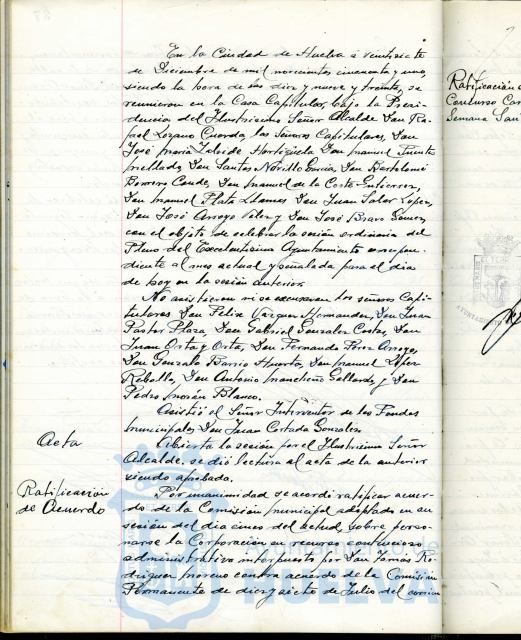 En la Ciudad de Huelva a veintisiete
de Diciembre de mil novecientos cincuenta y uno,
siendo la hora de las diez y nueve y treinta, se
reunieron en la Casa Capitular, bajo la Presi-
dencia del Ilustrísimo Señor Alcalde Don Ra-
fael Lozano Cuerda, los Señores Capitulares, Don
José María Zalvide Hortigüela Don Manuel Fuentes
Mellado, Don Santos Novillo García, Don Bartolomé
Borrero Conde, Don Manuel de la Corte Gutierrez,
Don Manuel Plata Llamas Don Juan Soler Lopez,
Don José Arroyo Velez y Don José Bravo Gomez,
con el objeto de celebrar la sesión ordinaria del
Pleno del Excelentísimo Ayuntamiento correspon-
diente al mes actual y señalada para el día
de hoy en la sesión anterior.
No asistieron ni se excusaron los señores Capi-
tulares Don Felix Vazquez Hernandez, Don Juan
Pastor Plaza, Don Gabriel Gonzalez Cortes, Don
Juan Orta y Orta, Don Fernando Perez Arroyo,
Don Gonzalo Barrio Huerta, Don Manuel Lopez
Rebollo, Don Antonio Mancheño Gallardo, y Don
Pedro Morán Blanco.
Asistió el Señor Interventor de los Fondos
Municipales Don Juan Cortada Gonzalez.
Acta
Abierta la sesión por el Ilustrísimo Señor
Alcalde, se dió lectura al acta de la anterior
siendo aprobada.
Ratificación
de Acuerdo
Por unanimidad se acordó ratificar acuer-
do de la Comisión Municipal adoptado en su
sesión del día cinco del actual, sobre perso-
narse la Corporación en recurso contencioso
administrativo interpuesto por Don Tomás Ro-
driguez Moreno contra acuerdo de la Comisión
Permanente de diez y siete de Julio del corrien
Ayuntamiento de
HUELVA
Ratificación
Concurso Car
Semana San